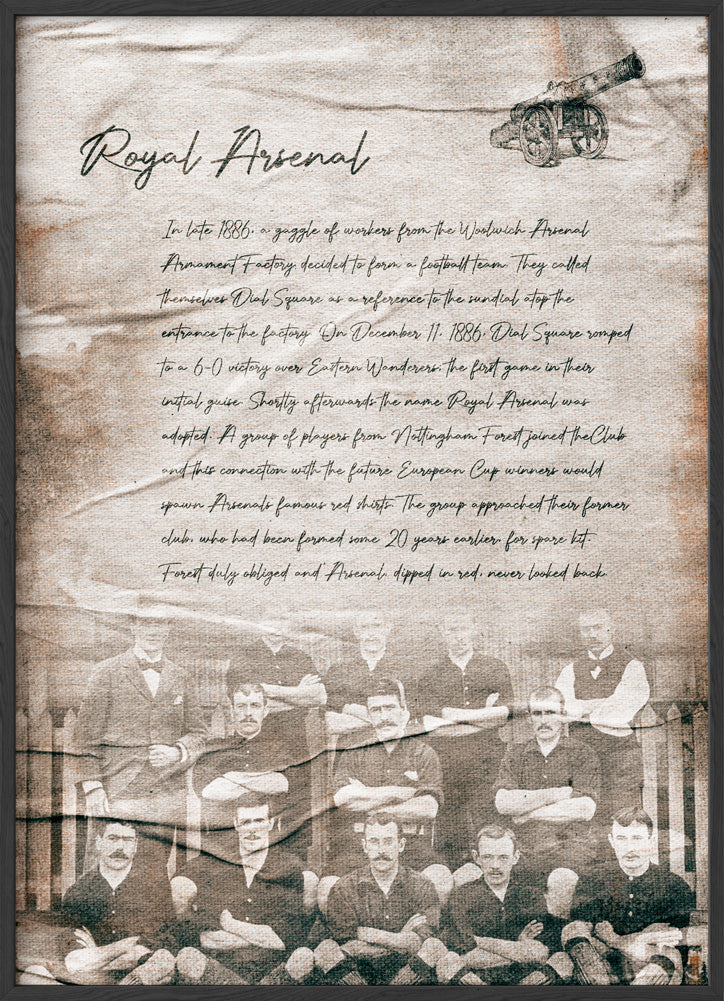 Royal Arsenal
In late 1886, a gaggle of workers from the Woolwich Arsenal
Armament Factory decided to form a football team. They called
themselves Dial Square as a reference to the sundial atop the
entrance to the factory. On December 11, 1886, Dial Square romped
to a 6-0 victory over Eastern Wanderers, the first game in their
initial guise. Shortly afterwards the name Royal Arsenal was
adopted. A group of players from Nottingham Forest joined the Club
and this connection with the future European Cup winners would
spawn Arsenals famous red shirts. The group approached their former
club, who had been formed some 20 years earlier, for spare kit.
Forest duly obliged and Arsenal, dipped in red, never looked back.